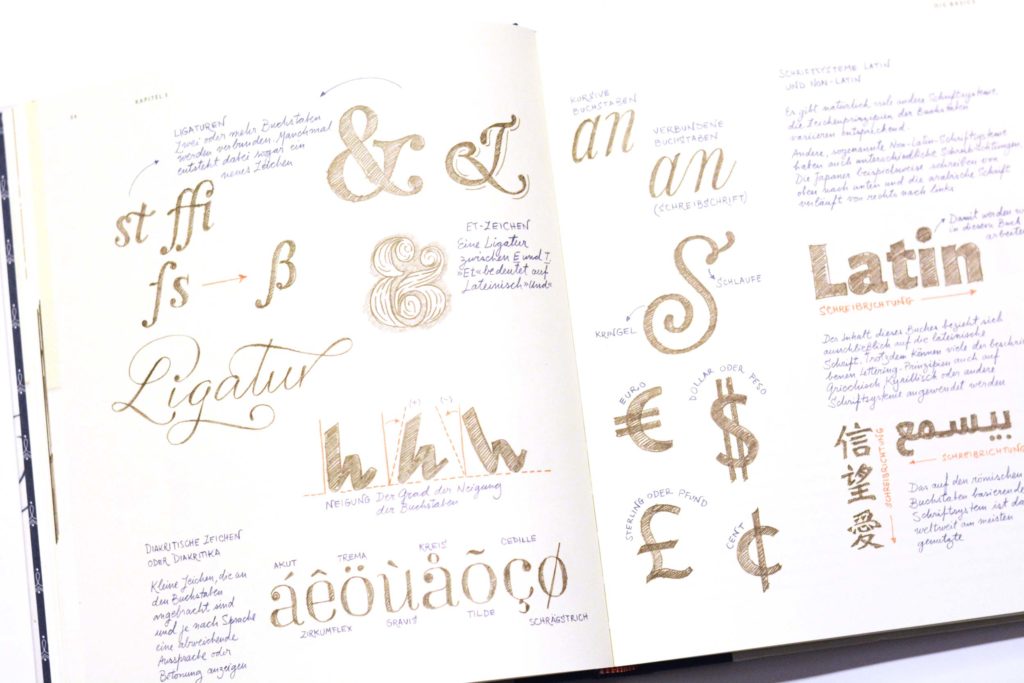 KAPITEL 1
LIGATUREN
Zwei oder mehr Buchstaben
werden verbunden. Manchmal
entsteht dabei sogar ein
neues Zeichen
st ffi
ſs → ß
Ligatur
& &
&
ET-ZEICHEN
Eine Ligatur
zwischen E und T.
»Et« bedeutet auf
Lateinisch »und«
(+) (-)
h h h
NEIGUNG Der Grad der Neigung
der Buchstaben
DIAKRITISCHE ZEICHEN
ODER DIAKRITIKA
Kleine Zeichen, die an
den Buchstaben
angebracht sind
und je nach Sprache
eine abweichende
Aussprache oder
Betonung anzeigen
AKUT TREMA KREIS CEDILLE
áêöùåõçø
ZIRKUMFLEX GRAVIS TILDE SCHRÄGSTRICH
DIE BASICS
KURSIVE
BUCHSTABEN
an
VERBUNDENE
BUCHSTABEN
an
(SCHREIBSCHRIFT)
S
SCHLAUFE
KRINGEL
EURO
€
DOLLAR ODER PESO
$
STERLING ODER PFUND
£
CENT
¢
SCHRIFTSYSTEME LATIN
UND NON-LATIN
Er gibt natürlich viele andere Schriftsysteme,
die Zeichenprinzipien der Buchstaben
variieren entsprechend.
Andere, sogenannte Non-Latin-Schriftsysteme
haben auch unterschiedliche Schreibrichtungen.
Die Japaner beispielsweise schreiben von
oben nach unten und die arabische Schrift
verläuft von rechts nach links
Damit werden
in diesem Buch
arbeiten
Latin
SCHREIBRICHTUNG →
Der Inhalt dieses Buches bezieht sich
ausschließlich auf die lateinische
Schrift. Trotzdem können viele der beschrie
benen Lettering-Prinzipien auch auf
Griechisch, Kyrillisch oder andere
Schriftsysteme angewendet werden
信望愛
SCHREIBRICHTUNG
بيسمع
← SCHREIBRICHTUNG
Das auf den römischen
Buchstaben basierende
Schriftsystem ist da
weltweit am meisten
genutzte